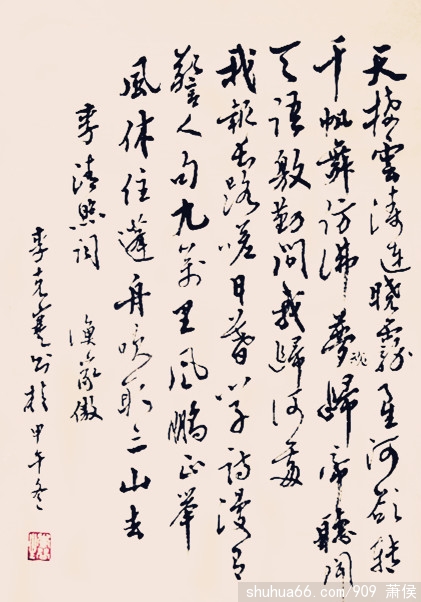 天接雲濤連曉霧星河欲轉
千帆舞仿佛夢魂歸帝聞
天語殷勤問我歸何處
我報長路嗟日暮学詩漫有
驚人句九萬里風鵬正舉
風休住蓬舟吹取三山去
李清照詞 漁家傲
李克書於甲午冬
shuhua66.com/909 蕭侯